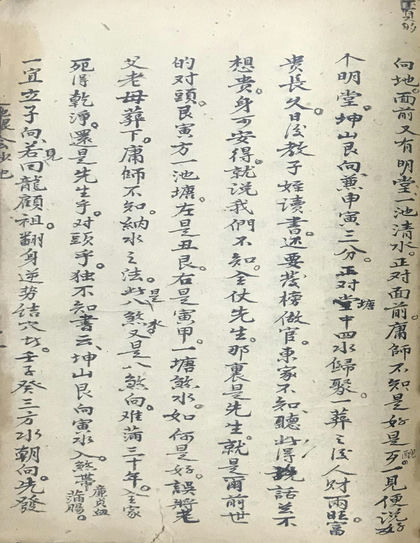 向地。面前又有明堂一池清水。正对面前庸師不知是好是歹。一見便説好
个明堂。坤山艮向兼申寅三分。正对堂中四水歸聚。葬之后人財兩旺富
塘
貴長久日后教子姪讀書。还要發榜做官。東家不知聽此得説話並不
想貴。身可安得。就説我們不知全仗先生。那裏是先生。就是爾前世
的对頭。艮寅方一池塘。左是丑艮。右是寅甲。一塘煞水如何是好。誤將老
父老母葬下。庸師不知納水之法。此八煞又是八煞向难蒲三十年。人主家
是水
死得乾淨。還是先生乎。对頭乎。独不知書云。坤山艮向寅水入煞帶
廉貞
蒲腸。
一宜立子向。若回龍顧祖。翻身逆勢结穴。壬子癸三方水朝向。先發
見